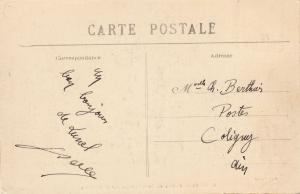 CARTE POSTALE
Correspondance
Adresse
un
bon bonjour
de Lunel
Melle Ch. Berthier
Postes
Coligny
Ain